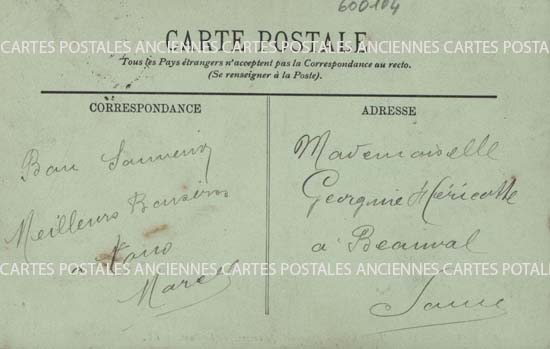 600104
CARTE POSTALE
CARTES POSTALES ANCIENNES CARTES POSTALES ANCIENNES CARTES POSTALES
Tous les Pays étrangers n'acceptent pas la Correspondance au recto.
(Se renseigner à la Poste).
CORRESPONDANCE
Bon Souvenir
Meilleurs Baisers
a
Marcel
ADRESSE
Mademoiselle
Georgine Héricotte
à Beauval
Somme
CARTES POSTALES ANCIENNES CARTES POSTALES ANCIENNES CARTES POTALES